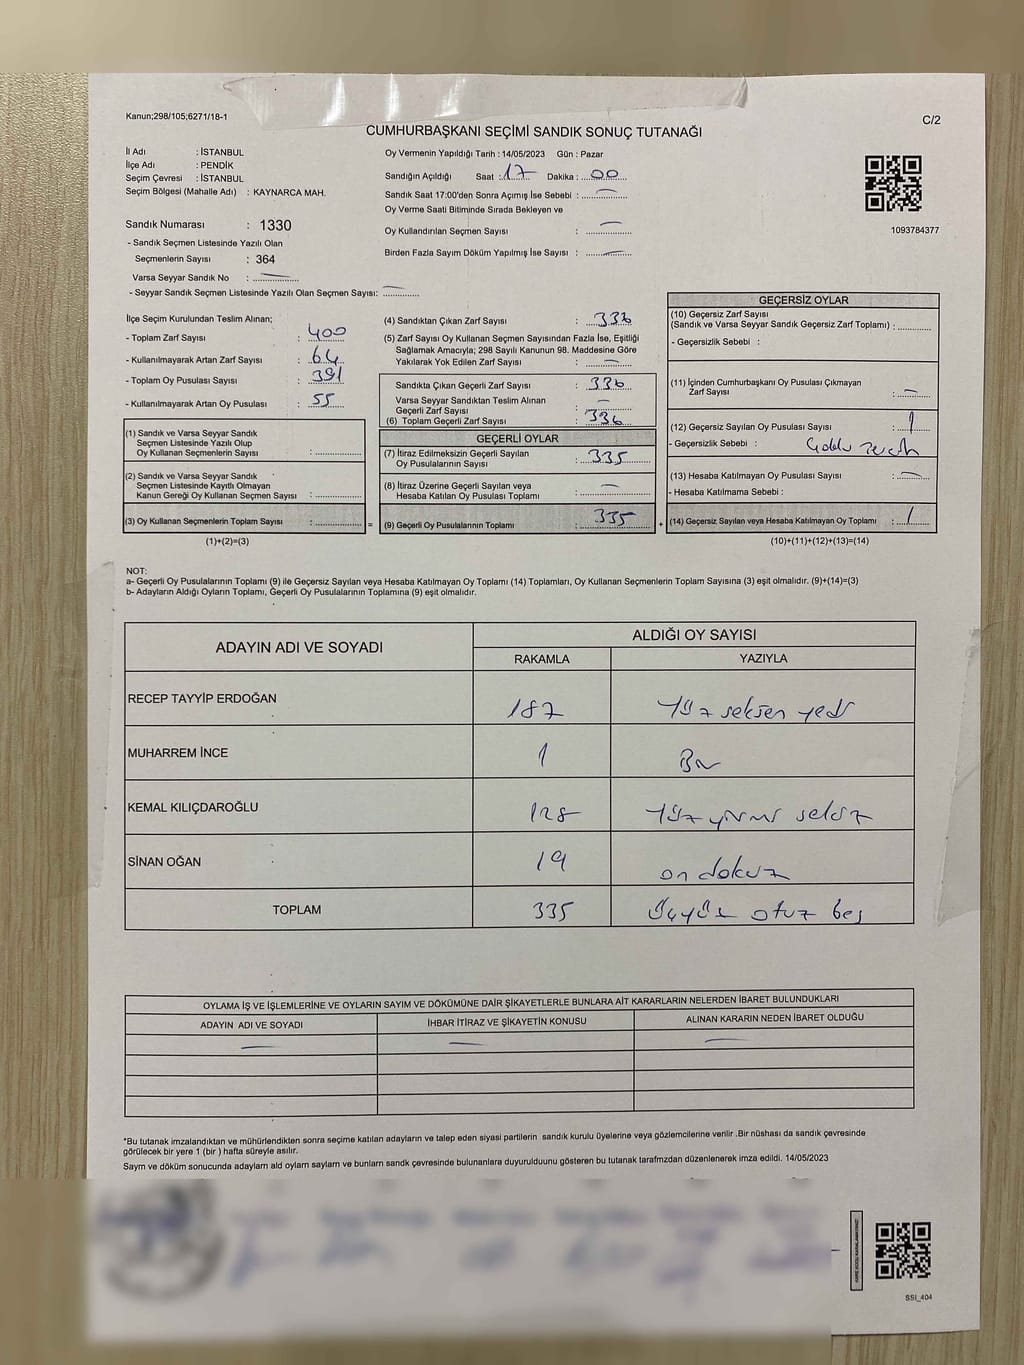 Kanun;298/105;6271/18-1
C/2
CUMHURBAŞKANI SEÇİMİ SANDIK SONUÇ TUTANAĞI
İl Adı : İSTANBUL
İlçe Adı : PENDİK
Seçim Çevresi : İSTANBUL
Seçim Bölgesi (Mahalle Adı) : KAYNARCA MAH.
Sandık Numarası : 1330
- Sandık Seçmen Listesinde Yazılı Olan
Seçmenlerin Sayısı : 364
Varsa Seyyar Sandık No : —
- Seyyar Sandık Seçmen Listesinde Yazılı Olan Seçmen Sayısı: —
Oy Vermenin Yapıldığı Tarih : 14/05/2023 Gün : Pazar
Sandığın Açıldığı Saat : 17 Dakika : 00
Sandık Saat 17:00'den Sonra Açımış İse Sebebi : —
Oy Verme Saati Bitiminde Sırada Bekleyen ve
Oy Kullandırılan Seçmen Sayısı : —
Birden Fazla Sayım Döküm Yapılmış İse Sayısı : —
1093784377
İlçe Seçim Kurulundan Teslim Alınan;
- Toplam Zarf Sayısı : 400
- Kullanılmayarak Artan Zarf Sayısı : 64
- Toplam Oy Pusulası Sayısı : 391
- Kullanılmayarak Artan Oy Pusulası : 55
(1) Sandık ve Varsa Seyyar Sandık
Seçmen Listesinde Yazılı Olup
Oy Kullanan Seçmenlerin Sayısı :
(2) Sandık ve Varsa Seyyar Sandık
Seçmen Listesinde Kayıtlı Olmayan
Kanun Gereği Oy Kullanan Seçmen Sayısı :
(3) Oy Kullanan Seçmenlerin Toplam Sayısı : =
(1)+(2)=(3)
(4) Sandıktan Çıkan Zarf Sayısı : 336
(5) Zarf Sayısı Oy Kullanan Seçmen Sayısından Fazla İse, Eşitliği
Sağlamak Amacıyla; 298 Sayılı Kanunun 98. Maddesine Göre
Yakılarak Yok Edilen Zarf Sayısı : —
Sandıkta Çıkan Geçerli Zarf Sayısı : 336
Varsa Seyyar Sandıktan Teslim Alınan
Geçerli Zarf Sayısı : —
(6) Toplam Geçerli Zarf Sayısı : 336
GEÇERLİ OYLAR
(7) İtiraz Edilmeksizin Geçerli Sayılan
Oy Pusulalarının Sayısı : 335
(8) İtiraz Üzerine Geçerli Sayılan veya
Hesaba Katılan Oy Pusulası Toplamı : —
(9) Geçerli Oy Pusulalarının Toplamı : 335 +
GEÇERSİZ OYLAR
(10) Geçersiz Zarf Sayısı
(Sandık ve Varsa Seyyar Sandık Geçersiz Zarf Toplamı) :
- Geçersizlik Sebebi :
(11) İçinden Cumhurbaşkanı Oy Pusulası Çıkmayan
Zarf Sayısı : —
(12) Geçersiz Sayılan Oy Pusulası Sayısı : 1
- Geçersizlik Sebebi :
(13) Hesaba Katılmayan Oy Pusulası Sayısı : —
- Hesaba Katılmama Sebebi :
(14) Geçersiz Sayılan veya Hesaba Katılmayan Oy Toplamı : 1
(10)+(11)+(12)+(13)=(14)
NOT:
a- Geçerli Oy Pusulalarının Toplamı (9) ile Geçersiz Sayılan veya Hesaba Katılmayan Oy Toplamı (14) Toplamları, Oy Kullanan Seçmenlerin Toplam Sayısına (3) eşit olmalıdır. (9)+(14)=(3)
b- Adayların Aldığı Oyların Toplamı, Geçerli Oy Pusulalarının Toplamına (9) eşit olmalıdır.
ADAYIN ADI VE SOYADI
ALDIĞI OY SAYISI
RAKAMLA YAZIYLA
RECEP TAYYİP ERDOĞAN 187 Yüz seksen yedi
MUHARREM İNCE 1 Bir
KEMAL KILIÇDAROĞLU 128 Yüz yirmi sekiz
SİNAN OĞAN 19 on dokuz
TOPLAM 335 Üçyüz otuz beş
OYLAMA İŞ VE İŞLEMLERİNE VE OYLARIN SAYIM VE DÖKÜMÜNE DAİR ŞİKAYETLERLE BUNLARA AİT KARARLARIN NELERDEN İBARET BULUNDUKLARI
ADAYIN ADI VE SOYADI İHBAR İTİRAZ VE ŞİKAYETİN KONUSU ALINAN KARARIN NEDEN İBARET OLDUĞU
— — —
*Bu tutanak imzalandıktan ve mühürlendikten sonra seçime katılan adayların ve talep eden siyasi partilerin sandık kurulu üyelerine veya gözlemcilerine verilir .Bir nüshası da sandık çevresinde
görülecek bir yere 1 (bir ) hafta süreyle asılır.
Saym ve döküm sonucunda adaylarn ald oylarn saylarn ve bunlarn sandk çevresinde bulunanlara duyurulduunu gösteren bu tutanak tarafmzdan düzenlenerek imza edildi. 14/05/2023
SSI_404